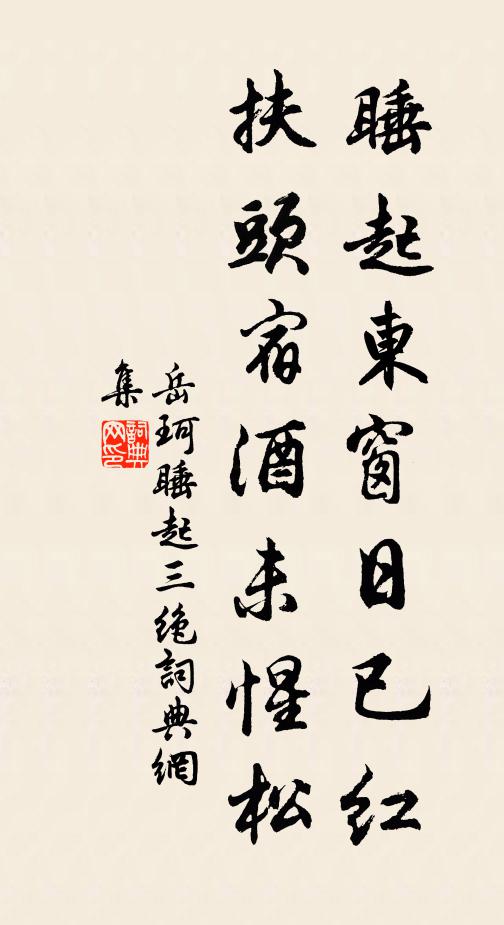 睡起東窗日已紅
扶頭宿酒未惺松
岳珂睡起三絶詞典網
集
詞典
网印